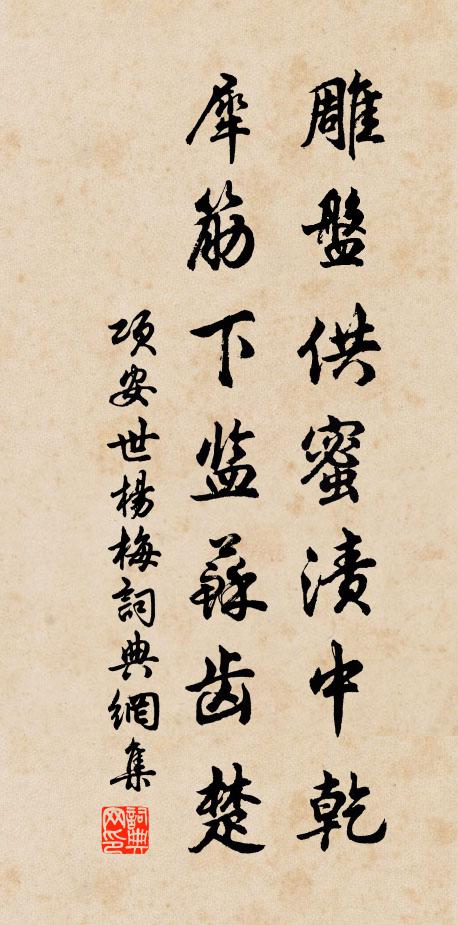 雕盤供蜜漬中乾
犀筋下监蘇齿楚
项安世楊梅詞典網集
詞典网印